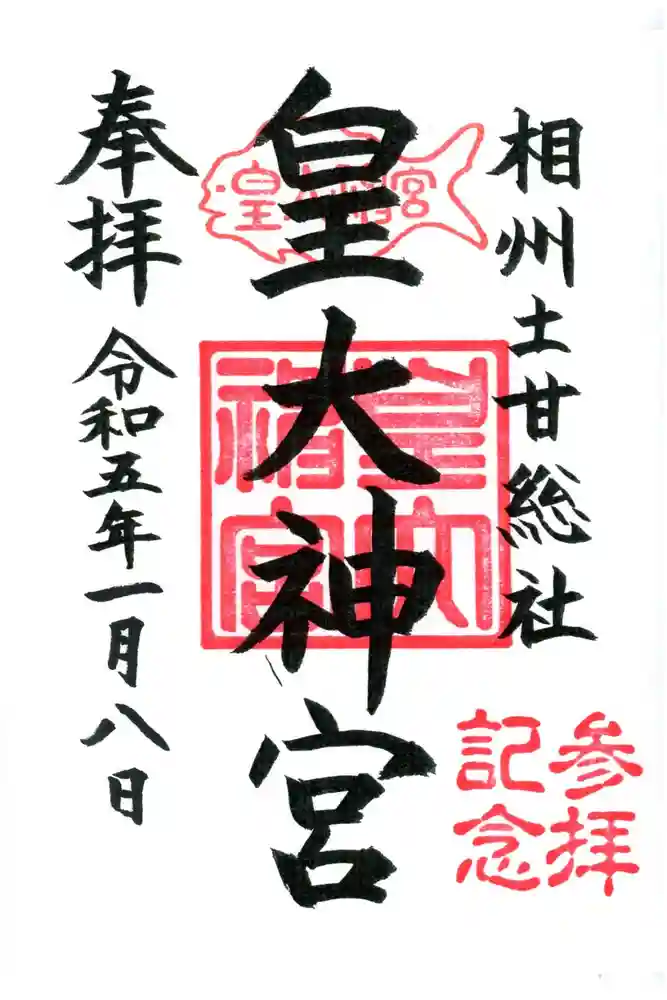 相州土甘総社
皇大神宮
皇大神宮
皇大神宮
奉拝 令和五年一月八日
参拝
記念